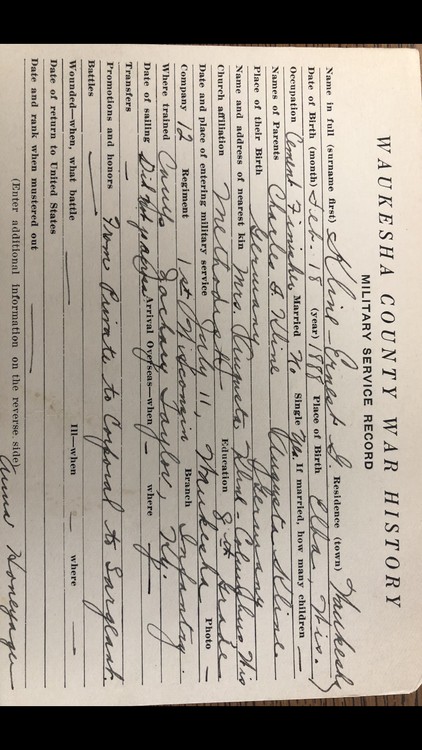 WAUKESHA COUNTY WAR HISTORY
MILITARY SERVICE RECORD
Name in full (surname first) Kline - Ernest G. Residence (town) Waukesha
Date of Birth (month) Feb. 18 (year) 1888 Place of Birth Elba, Wis.
Occupation Cement Finisher Married No Single Yes. If married, how many children —
Names of Parents Charles G. Kline Augusta Kline.
Place of their Birth Germany Germany
Name and address of nearest kin Mrs. Augusta Kline - Columbus, Wis
Church affiliation Methodist Education 8th Grade
Date and place of entering military service July 11, Waukesha Photo —
Company 12 Regiment 1st Wisconsin Branch Infantry
Where trained Camp Zachary Taylor, Ky.
Date of sailing Did not go Arrival Overseas—when — where —
Transfers —
Promotions and honors From Private to Corporal to Sargent.
Battles —
Wounded—when, what battle — Ill—when — where —
Date of return to United States
Date and rank when mustered out —
(Enter additional information on the reverse side)
Anna